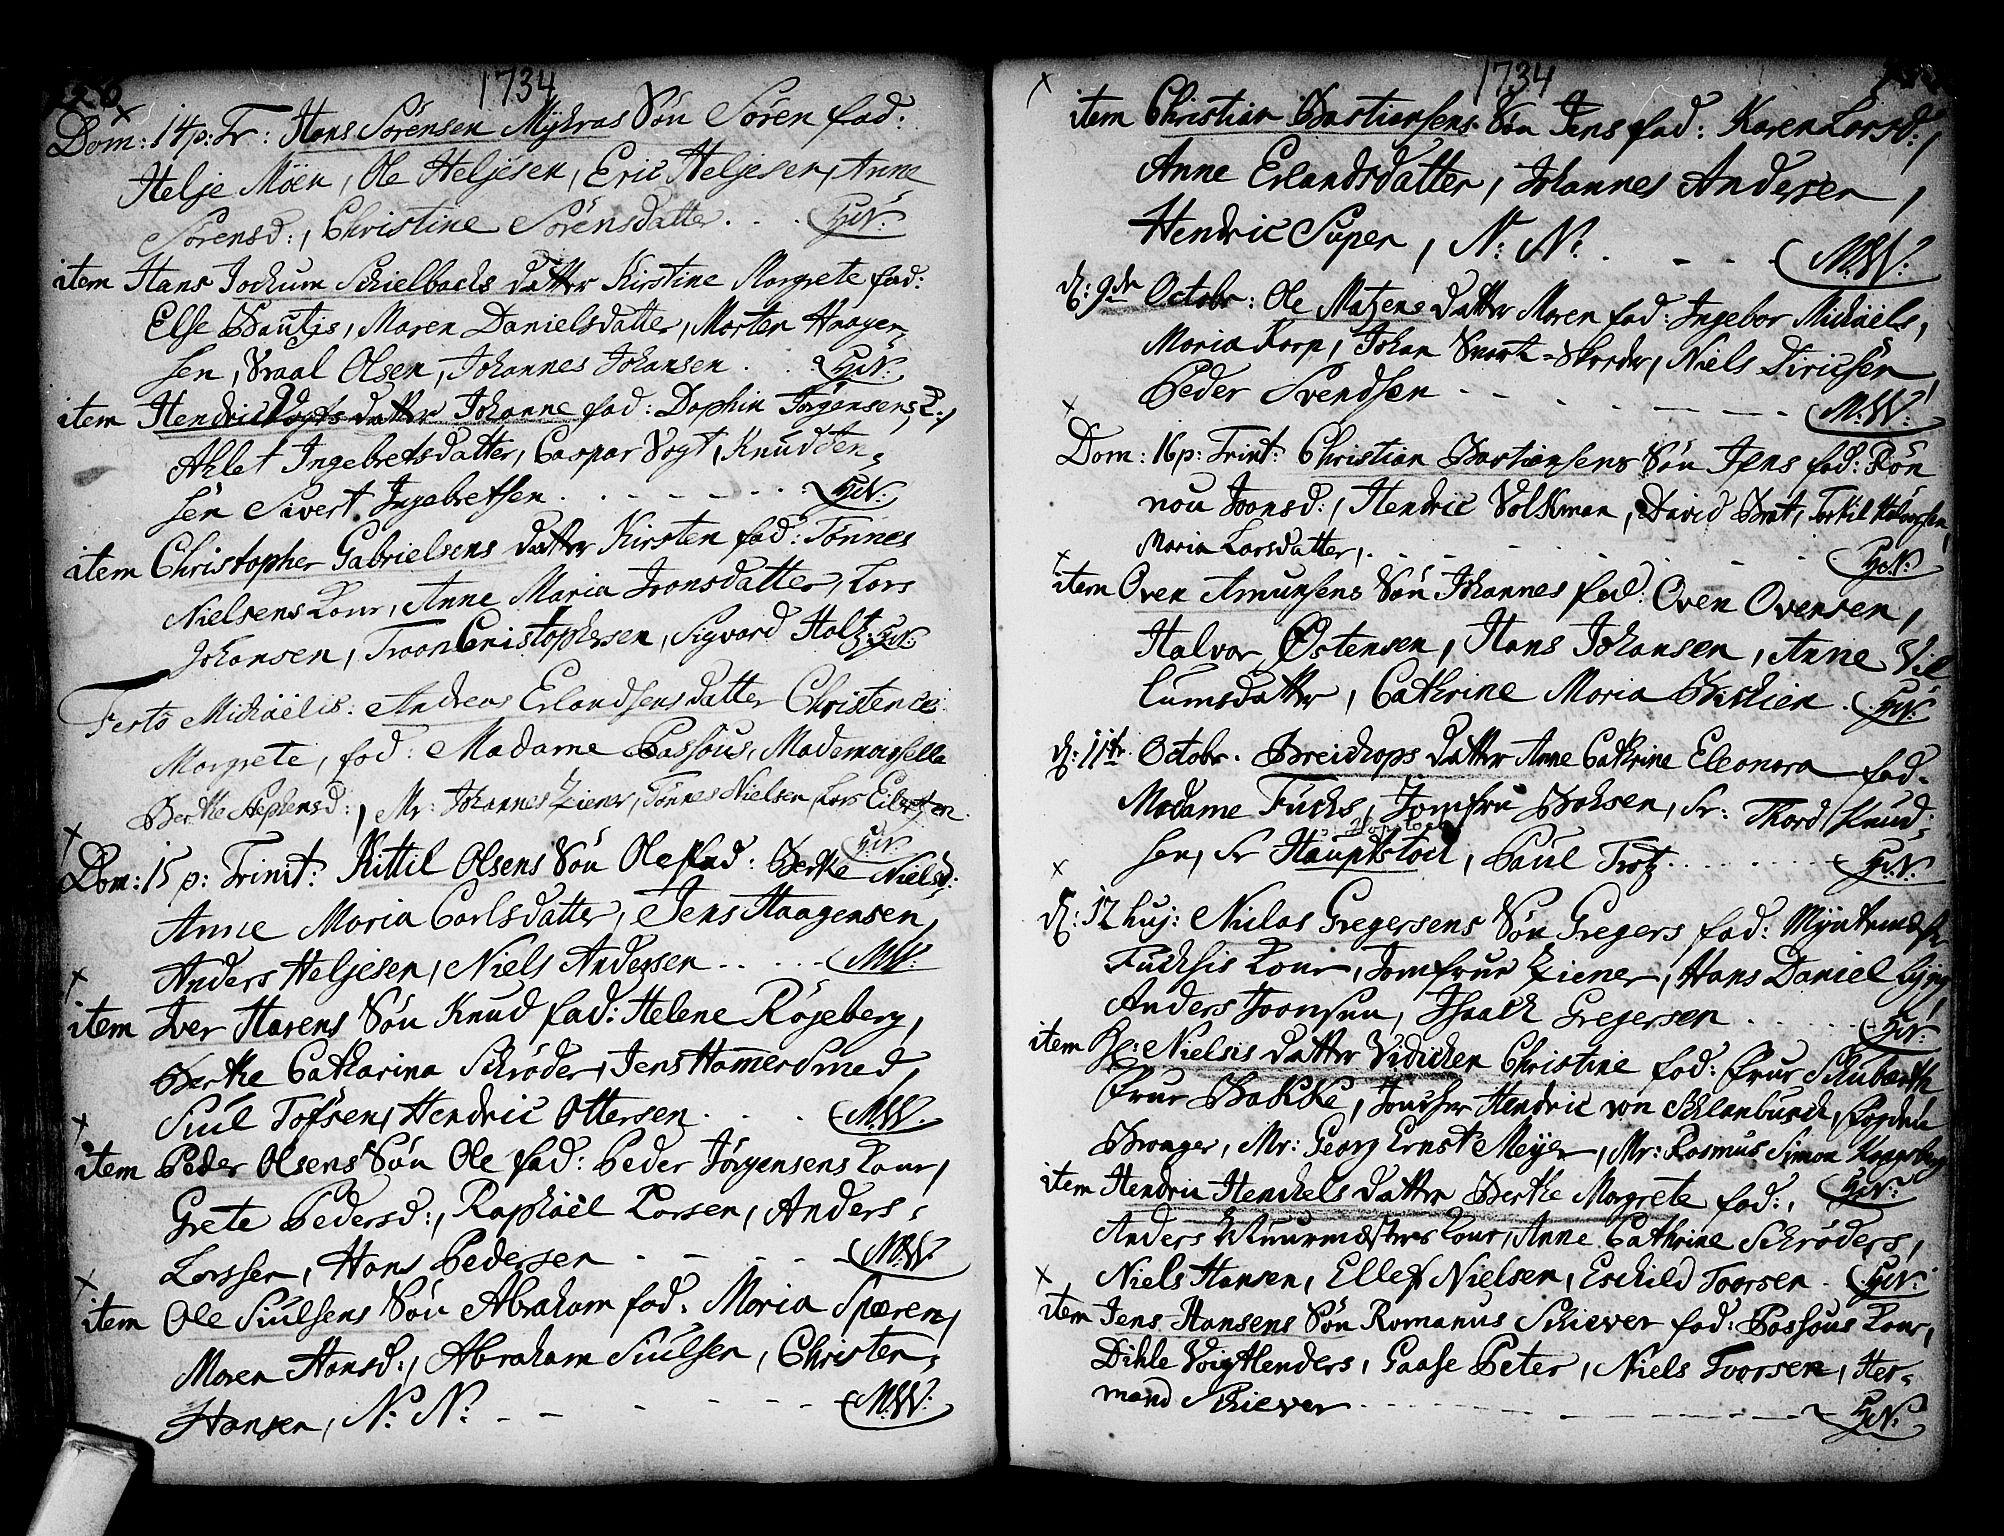 226
1734
Dom: 14 p: Tr: Hans Sörensen Mykras Sön Sören fad:
Helje Möen, Ole Heljesen, Eric Heljesen, Anne
Sörensd:, Christine Sörensdatter. . .
item Hans Jochum Schielbachs datter Kirstine Margrete fad:
Else Bautjs, Maren Danielsdatter, Morten Haagen-
sen, Vraal Olsen, Johannes Johansen . .
item Hendric Vogts datter Johanne fad: Dophin Jörgensens K:,
Ahlet Ingebretsdatter, Caspar Vogt, Knud
sen Sivert Ingebretsen . . . . .
item Christopher Gabrielsens datter Kirsten fad: Tönnes
Nielsens Kone, Anne Maria Joonsdatter, Lars
Johansen, Troon Christophersen, Sigvard Holtz
Festo Michaëlis: Andreas Erlandsens datter Christence
Margrete, fad: Madame Passous, Mademoyselle
Berthe Stephensd:, Mr: Johannes Ziener, Tönnes Nielsen, Lars Eilertsen.
Dom: 15 p: Trinit: Kittil Olsens Sön Ole fad: Berthe Nielsd:
Anne Maria Carlsdatter, Jens Haagensen,
Anders Heljesen, Niels Andersen . . . . MW:
item Iver Harens Sön Knud fad: Helene Röjeberg,
Berthe Catharina Schröder, Jens Hamersmed,
Siul Tofsen, Hendric Ottersen . . . MW:
item Peder Olsens Sön Ole fad: Peder Jörgensens Kone,
Grete Pedersd:, Raphaël Larsen, Anders
Larssen, Hans Pedersen - - - - MW:
item Ole Siulsens Sön Abraham fad: Maria Spæren,
Maren Hansd:, Abraham Siulsen, Christen
Hansen, N: N: - - - - MW:
1734
item Christian Bastiansens Sön Jens fad: Karen Larsd:,
Anne Erlandsdatter, Johannes Andersen,
Hendric Super, N: N: . - - - MW:
d: 9de Octobr: Ole Matzens datter Maren fad: Ingebor Michaëls,
Maria Korp, Johan Svart-Skreder, Niels Diricsen
Peder Svendsen - - - - - MW:
Dom: 16 p: Trinit: Christian Bastiansens Sön Jens fad: Rön
nou Joonsd:, Hendric Volkman, David Brat, Torkil Halvorsen,
Maria Larsdatter, . - - - -
item Oven Amunsens Sön Johannes fad: Oven Ovensen,
Halvor Østensen, Hans Johansen, Anne Vil
lumsdatter, Cathrine Maria .
d: 11te Octobr. Breichops datter Anne Cathrine Eleonora fad.
Madame Fuchs, Jomfru Boksen, Sr: Thord Knud-
sen, Sr Hauptstock, Paul Trotz . . . . .
d: 12 huj: Niclas Gregersens Sön Gregers fad: Myntmestr
Fuchsis Kone, Jomfrue Ziener, Hans Daniel
Anders Joonsen, Isaach Gregersen . . . .
item Hr: Nielsis datter Vidichen Christine fad: Frue Schubarth
Frue Bakke, Joncher Hendric von Schlanbusch,
Bronger, Mr: Georg Ernst Meyer, Mr: Rasmus Simon
item Hendric Henchels datter Berthe Margrete fad:,
Anders Muurmæsters Kone, Anne Cathrine Schröders,
Niels Hansen, Ellef Nielsen, Eschild Toorsen .
item Jens Hansens Sön Romanus Schiever fad: Passous Kone,
Dihle Voigtlenders, Gaase Peter, Niels Toorsen, Her-
mand Schiever . . . . .